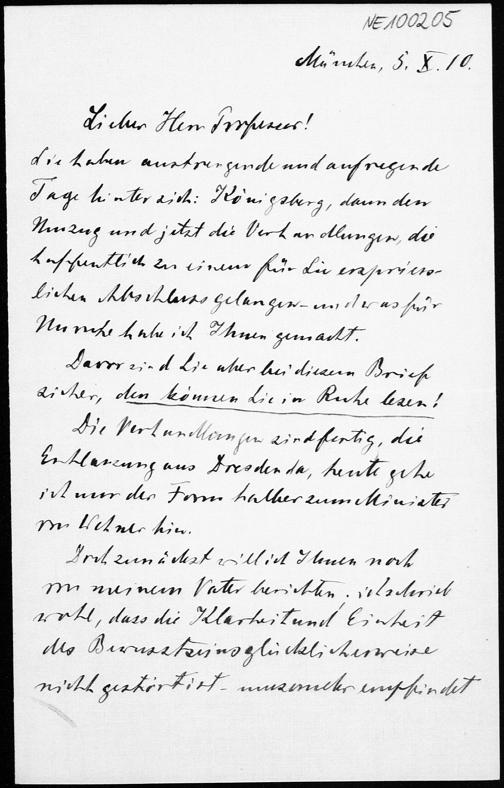 NE100205
München, 5. X. 10.
Lieber Herr Professor!
Sie haben anstrengende und aufregende
Tage hinter sich: Königsberg, dann den
Umzug und jetzt die Verhandlungen, die
hoffentlich zu einem für Sie erspriess-
lichen Abschluss gelangen – und was für
Unruhe habe ich Ihnen gemacht.
Davor sind Sie aber bei diesem Brief
sicher, den können Sie in Ruhe lesen!
Die Verhandlungen sind fertig, die
Entlassung aus Dresden da, heute gehe
ich nur der Form halber zum Minister
von Wehner hin.
Doch zunächst will ich Ihnen noch
von meinem Vater berichten. ich schrieb
wohl, dass die Klarheit und Einheit
des Bewusstseins glücklicherweise
nicht gestört ist – umsomehr empfindet